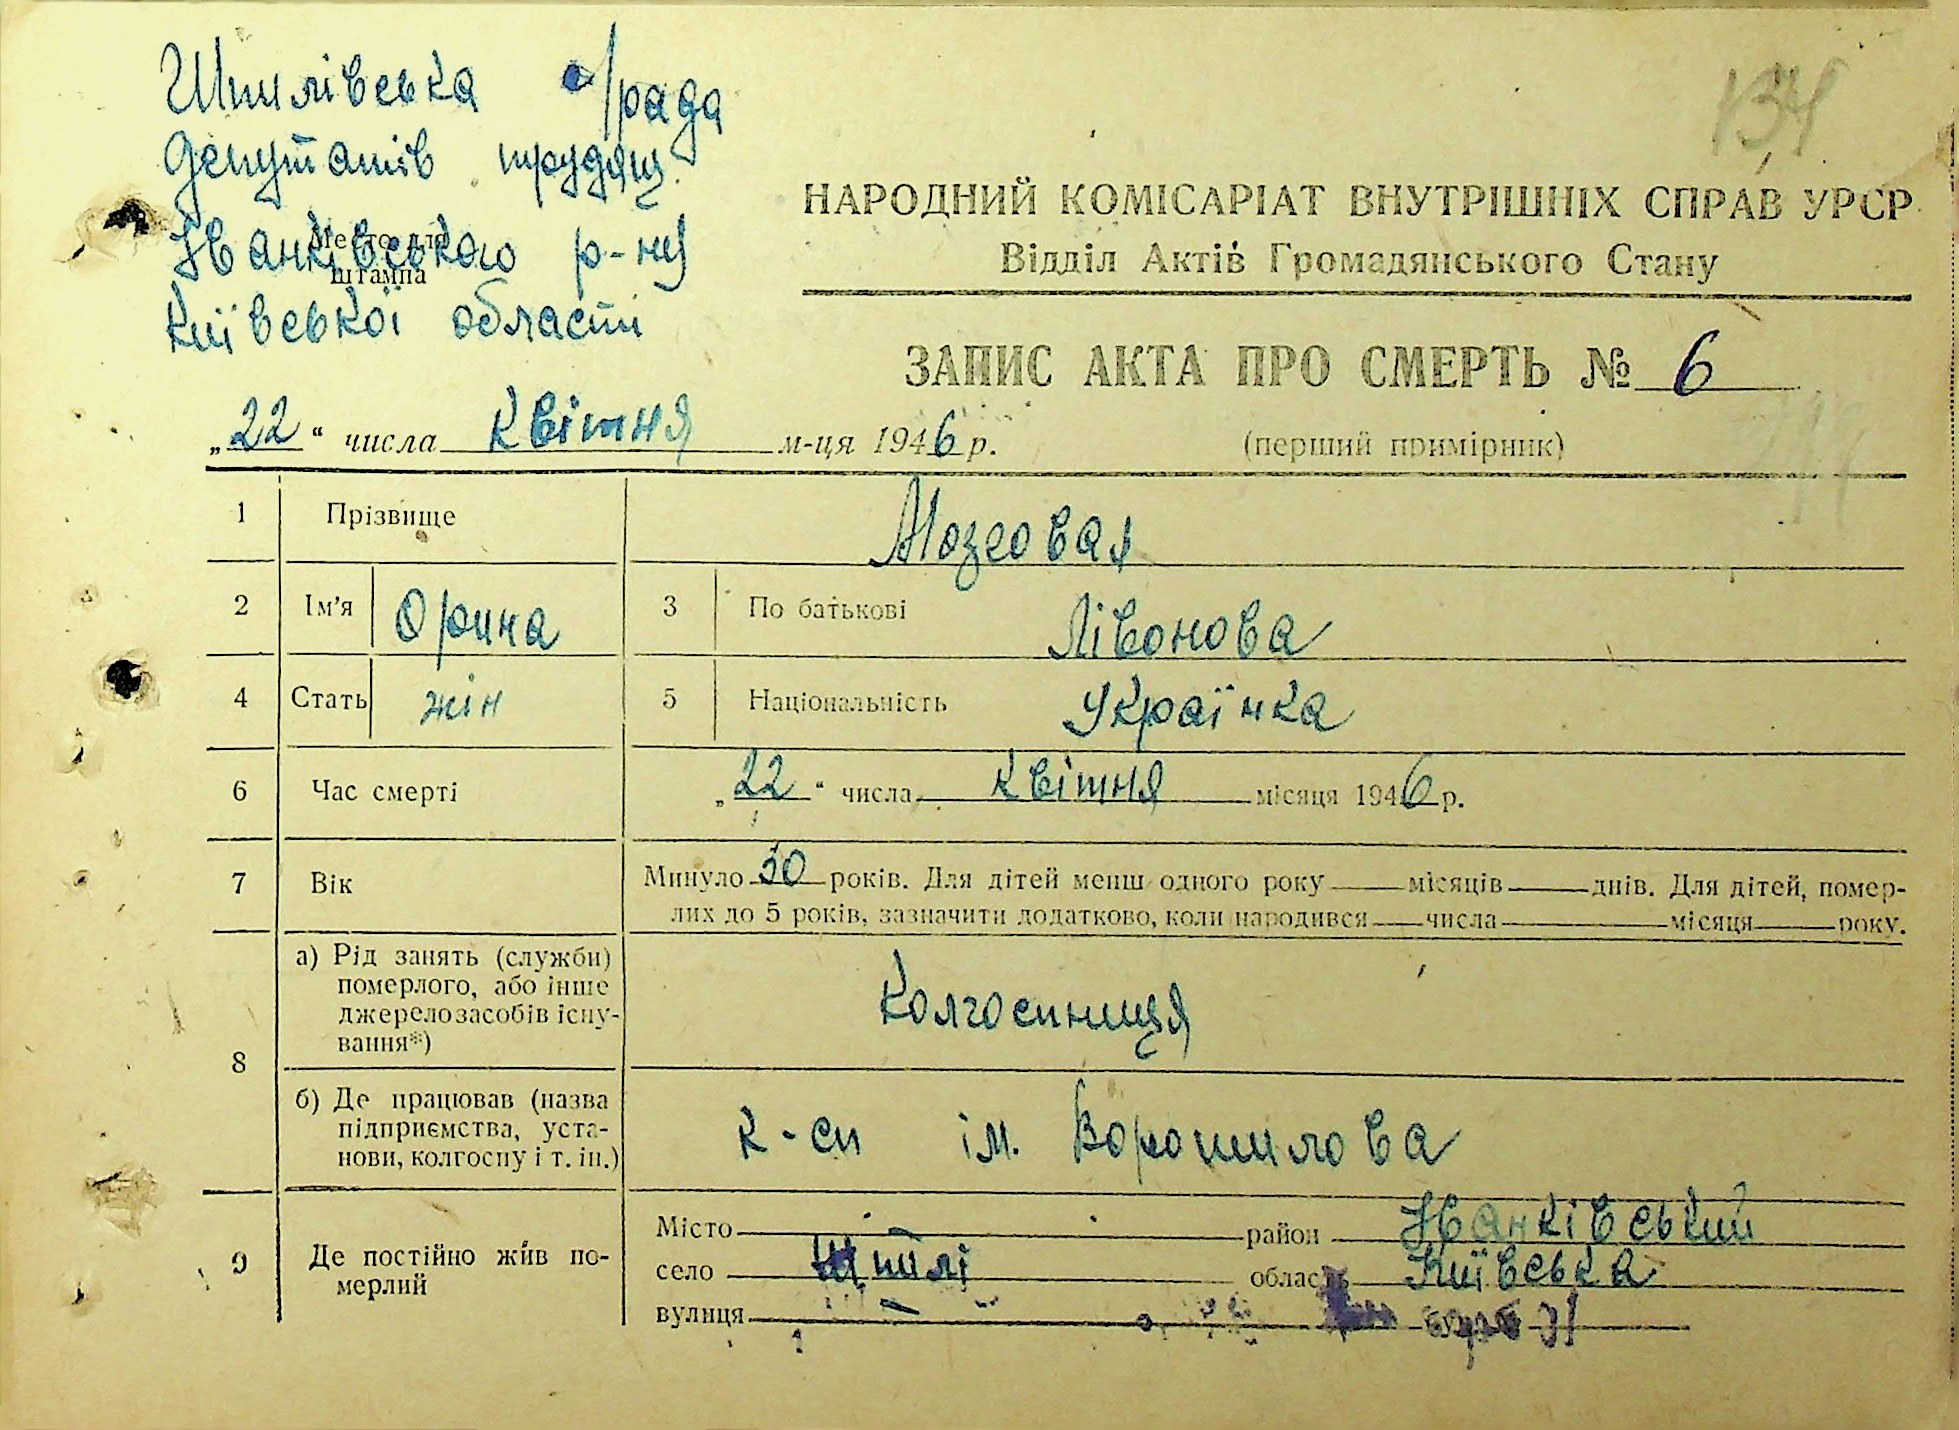 Шпилівська с/рада
депутатів трудящ.
Іванківського р-ну
Место для
штампа
Київської області
134
НАРОДНИЙ КОМІСАРІАТ ВНУТРІШНІХ СПРАВ УРСР
Відділ Актів Громадянського Стану
ЗАПИС АКТА ПРО СМЕРТЬ № 6
„22“ числа квітня м-ця 1946 р.
(перший примірник)
1 Прізвище Мозговая
2 Ім'я Орина 3 По батькові Лівонова
4 Стать жін 5 Національність Українка
6 Час смерті „22“ числа квітня місяця 1946 р.
7 Вік Минуло 30 років. Для дітей менш одного року місяців днів. Для дітей, помер-
лих до 5 років, зазначити додатково, коли народився числа місяця року.
8 а) Рід занять (служби)
померлого, або інше
джерело засобів існу-
вання*)
Колгоспниця
б) Де працював (назва
підприємства, уста-
нови, колгоспу і т. ін.)
к-сп ім. Ворошилова
9 Де постійно жив по-
мерлий
Місто — район Іванківський
село Шпилі область Київська
вулиця —